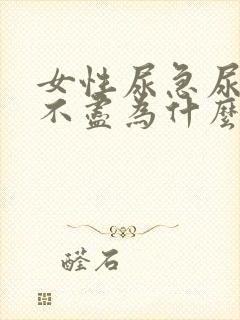 女性尿急尿
不盡為什麼
醛石